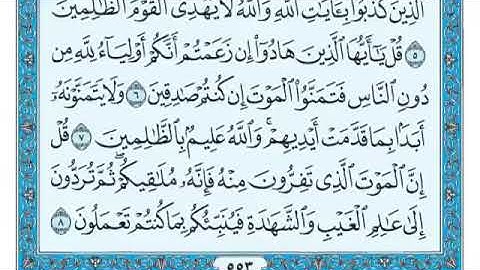 الَّذِينَ كَذَّبُوا۟ بِـَٔايَـٰتِ اللَّهِ وَاللَّهُ لَا يَهْدِى الْقَوْمَ الظَّـٰلِمِينَ
٥ قُلْ يَـٰٓأَيُّهَا الَّذِينَ هَادُوٓا۟ إِن زَعَمْتُمْ أَنَّكُمْ أَوْلِيَآءُ لِلَّهِ مِن
دُونِ النَّاسِ فَتَمَنَّوُا۟ الْمَوْتَ إِن كُنتُمْ صَـٰدِقِينَ ٦ وَلَا يَتَمَنَّوْنَهُۥٓ
أَبَدًۢا بِمَا قَدَّمَتْ أَيْدِيهِمْ ۚ وَاللَّهُ عَلِيمٌۢ بِالظَّـٰلِمِينَ ٧ قُلْ
إِنَّ الْمَوْتَ الَّذِى تَفِرُّونَ مِنْهُ فَإِنَّهُۥ مُلَـٰقِيكُمْ ۖ ثُمَّ تُرَدُّونَ
إِلَىٰ عَـٰلِمِ الْغَيْبِ وَالشَّهَـٰدَةِ فَيُنَبِّئُكُم بِمَا كُنتُمْ تَعْمَلُونَ ٨
٥٥٣